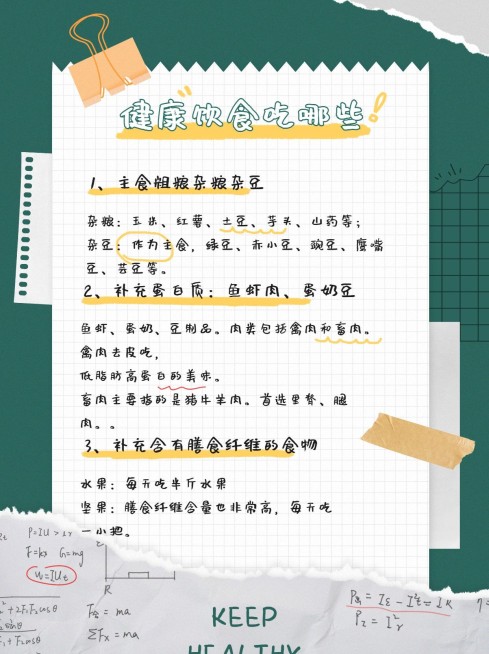 健康饮食吃哪些!
1、主食粗粮杂粮杂豆
杂粮：玉米、红薯、土豆、芋头、山药等；
杂豆：作为主食，绿豆、赤小豆、豌豆、鹰嘴
豆、芸豆等。
2、补充蛋白质：鱼虾肉、蛋奶豆
鱼虾、蛋奶、豆制品。肉类包括禽肉和畜肉。
禽肉去皮吃，
低脂肪高蛋白的美味。
畜肉主要指的是猪牛羊肉。首选里脊、腿
肉。。
3、补充含有膳食纤维的食物
水果：每天吃半斤水果
坚果：膳食纤维含量也非常高，每天吃
一小把。
F=kx G=mg
W=IUt
R
ΣFx = ma
KEEP
HEALTHY